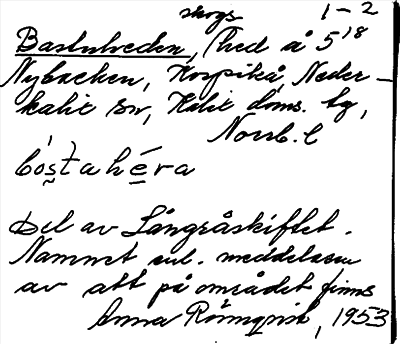 skogs 1-2
Bastuheden, hed å 5^18
Nybacken, Korpikå, Neder-
kalix sn, Kalix doms. tg,
Norrb. l
Del av Långråskiftet.
Namnet enl. meddelaren
av att på området finns
Anna Rönnqvist, 1953